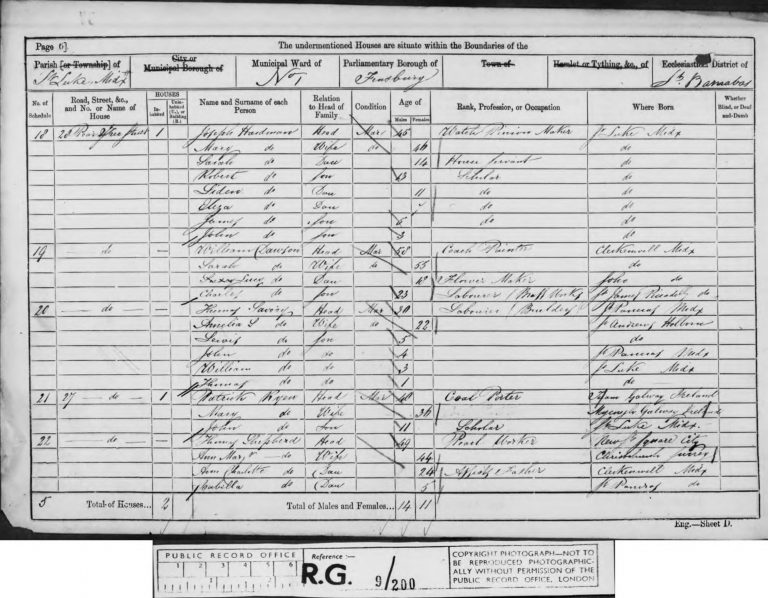 Page 6]
The undermentioned Houses are situate within the Boundaries of the
Parish [or Township] of
St Luke Midx
City or
Municipal Borough of
Municipal Ward of
No 1
Parliamentary Borough of
Finsbury
Town of
Hamlet or Tything, &c., of
Ecclesiastical District of
St Barnabas
No. of Schedule
Road, Street, &c., and No. or Name of House
HOUSES
Inhabited
Uninhabited (U.), or Building (B.)
Name and Surname of each Person
Relation to Head of Family
Condition
Age of
Males
Females
Rank, Profession, or Occupation
Where Born
Whether Blind, or Deaf-and-Dumb
18 28 Street 1 Joseph Hardman Head Mar 45 Watch Pinion Maker St Luke Midx
Mary do Wife do 46 do
Sarah do Dau 14 House Servant do
Robert do Son 13 Scholar do
do Dau 11 do do
Eliza do Dau do do
James do Son 5 do do
John do Son 3 do
19 — do — — William Dawson Head Mar 58 Coach Painter Clerkenwell Midx
Sarah do Wife do 55 do
do Dau 18 Flower Maker Soho do
Charles do Son 23 Labourer St James Piccadilly do
20 — do — — Henry Head Mar 30 Labourer (Builders) St Pancras Midx
Amelia S do Wife do 22 St Andrew Holborn
Lewis do Son 5 do
John do do 4 St Pancras Midx
William do do 3 St Luke Midx
Thomas do do 1 do
21 27 — do — 1 Patrick Ryan Head Mar 40 Coal Porter Galway Ireland
Mary do Wife 36 Galway Ireland
John do Son 11 Scholar St Luke Midx
22 — do — — Henry Shepherd Head 49 Pearl Worker New Square City
Ann Mary do Wife 44 Christchurch Surrey
Ann Charlotte do Dau 24 Father Clerkenwell Midx
Isabella do Dau 5 St Pancras do
5 Total of Houses... 2 Total of Males and Females... 14 11
Eng.—Sheet D.
PUBLIC RECORD OFFICE
1 2 3 4 5 6
Reference :—
R.G. 9/200
COPYRIGHT PHOTOGRAPH—NOT TO
BE REPRODUCED PHOTOGRAPHIC-
ALLY WITHOUT PERMISSION OF THE
PUBLIC RECORD OFFICE, LONDON